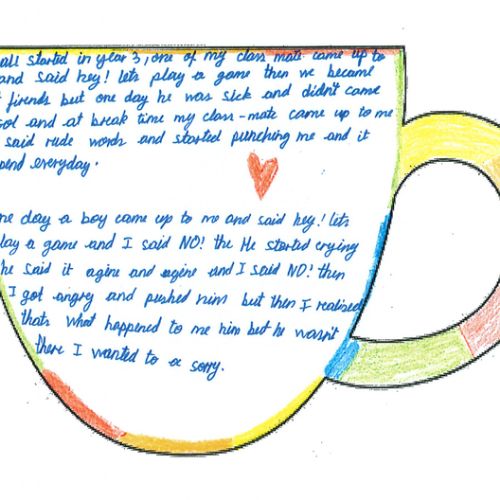 all started in year 3, one of my class mate came up to
and said hey! lets play a game then we became
firends but one day he was sick and didn't came
and at break time my class-mate came up to me
said rude words and started punching me and it
everyday.
day a boy came up to me and said hey! lets
play a game and I said NO! the He started crying
he said it agine and agine and I said NO! then
I got angry and pushed him but then I realised
thats what happened to me him but he wasn't
there I wanted to a sorry.